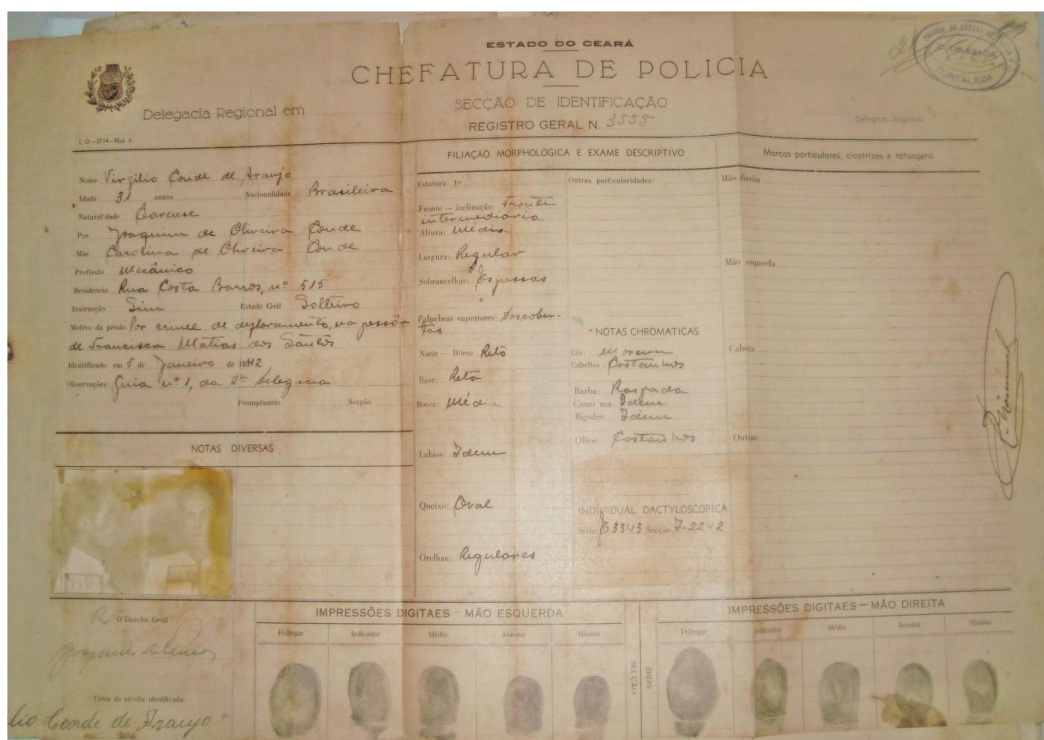 ESTADO DO CEARÁ
CHEFATURA DE POLICIA
Delegacia Regional em
SECÇÃO DE IDENTIFICAÇÃO
REGISTRO GERAL N. 3555
Delegado Regional
FORTALEZA
T. O.—2714—Mod. 4
Nome Virgilio Conde de Araujo
Idade 31 annos Nacionalidade Brasileira
Naturalidade Cearense
Pae Joaquim de Oliveira Conde
Mãe Carolina de Oliveira Conde
Profissão Mecânico
Residencia Rua Costa Barros, nº 515
Instrucção Sim Estado Civil Solteiro
Motivo da prisão Por crime de defloramento, na pessôa
de Francisca Matias dos Santos
Identificado em 5 de Janeiro de 1942
Observações: Guia nº 1, da 2ª Delegacia
Promptuario Secção
NOTAS DIVERSAS
3555
FILIAÇÃO MORPHOLOGICA E EXAME DESCRIPTIVO
Estatura: 1m
Fronte — inclinação: Fronte
intermediária
Altura: Média
Largura: Regular
Sobrancelhas: Espessas
Palpebras superiores: Descober-
tas
Nariz — Dorso Réto
Base: Reta
Bocca: Média
Labios: Idem
Queixo: Oval
Orelhas: Regulares
Outras particularidades:
NOTAS CHROMATICAS
Côr: Morena
Cabellos: Castanhos
Barba: Raspada
Como usa Idem
Bigodes: Idem
Olhos: Castanhos
INDIVIDUAL DACTYLOSCOPICA
Série Secção
Marcas particulares, cicatrizes e tatuagens
Mão direita
Mão esquerda
Cabeça
Outras
O Director Geral
Firma da pessôa identificada:
Conde de Araujo
IMPRESSÕES DIGITAES — MÃO ESQUERDA
Pollegar Indicador Médio Annular Minimo
SECÇÃO
IMPRESSÕES DIGITAES — MÃO DIREITA
Pollegar Indicador Médio Annular Minimo